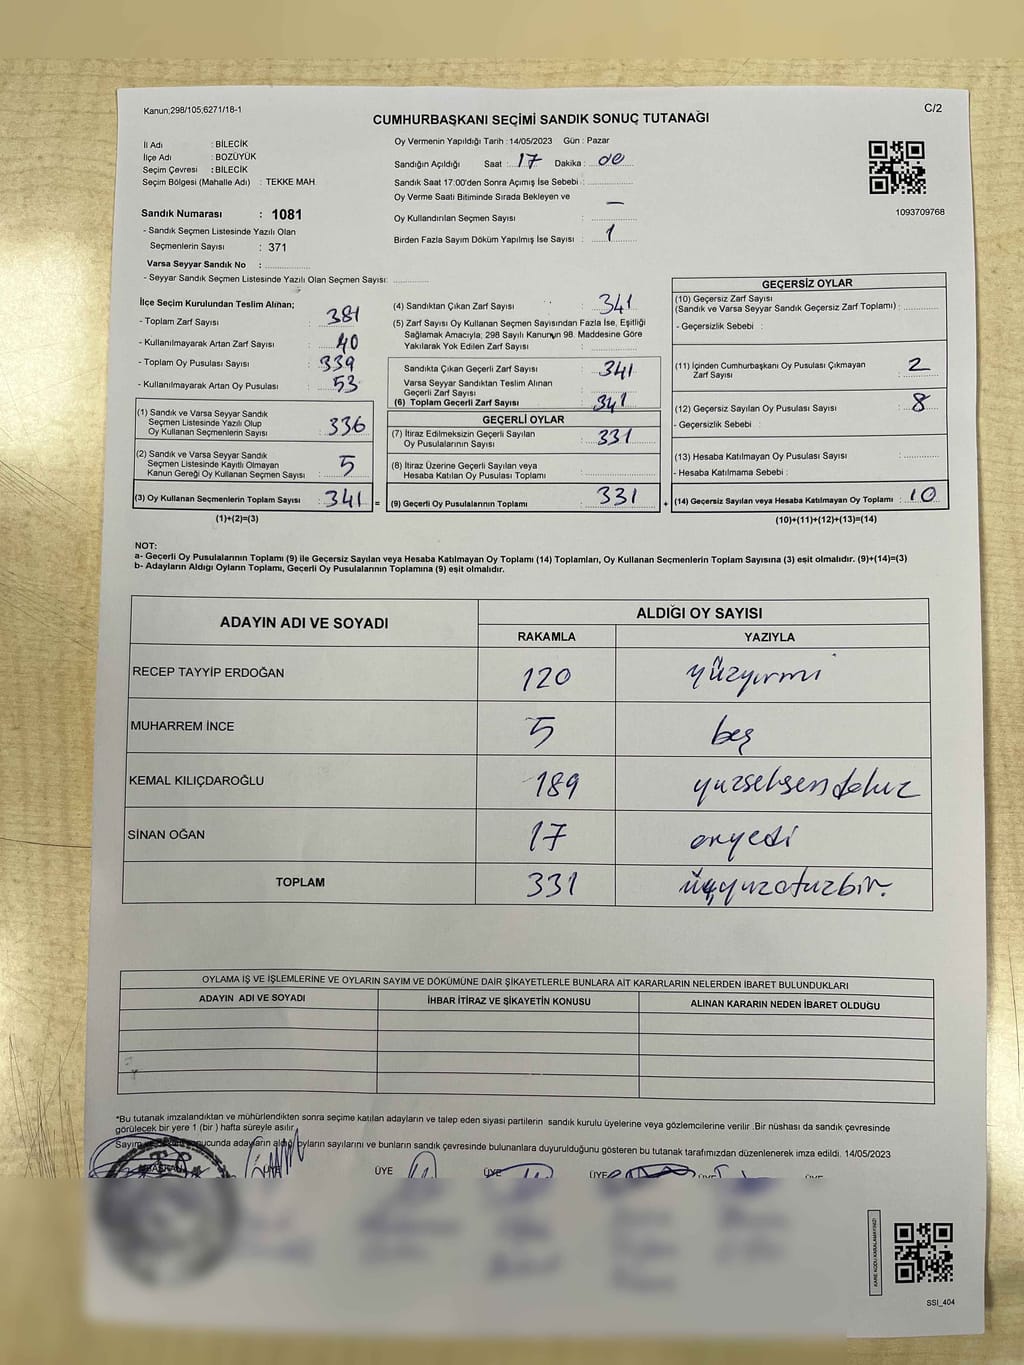 Kanun,298/105,6271/18-1
C/2
CUMHURBAŞKANI SEÇİMİ SANDIK SONUÇ TUTANAĞI
İl Adı : BİLECİK
İlçe Adı : BOZÜYÜK
Seçim Çevresi : BİLECİK
Seçim Bölgesi (Mahalle Adı) : TEKKE MAH
Sandık Numarası : 1081
- Sandık Seçmen Listesinde Yazılı Olan
Seçmenlerin Sayısı : 371
Varsa Seyyar Sandık No :
- Seyyar Sandık Seçmen Listesinde Yazılı Olan Seçmen Sayısı:
Oy Vermenin Yapıldığı Tarih : 14/05/2023 Gün : Pazar
Sandığın Açıldığı Saat : 17 Dakika : 00
Sandık Saat 17.00'den Sonra Açımış İse Sebebi :
Oy Verme Saati Bitiminde Sırada Bekleyen ve
Oy Kullandırılan Seçmen Sayısı : —
Birden Fazla Sayım Döküm Yapılmış İse Sayısı : 1
1093709768
İlçe Seçim Kurulundan Teslim Alınan;
- Toplam Zarf Sayısı : 381
- Kullanılmayarak Artan Zarf Sayısı : 40
- Toplam Oy Pusulası Sayısı : 339
- Kullanılmayarak Artan Oy Pusulası : 53
(1) Sandık ve Varsa Seyyar Sandık
Seçmen Listesinde Yazılı Olup
Oy Kullanan Seçmenlerin Sayısı : 336
(2) Sandık ve Varsa Seyyar Sandık
Seçmen Listesinde Kayıtlı Olmayan
Kanun Gereği Oy Kullanan Seçmen Sayısı : 5
(3) Oy Kullanan Seçmenlerin Toplam Sayısı : 341 =
(1)+(2)=(3)
(4) Sandıktan Çıkan Zarf Sayısı : 341
(5) Zarf Sayısı Oy Kullanan Seçmen Sayısından Fazla İse, Eşitliği
Sağlamak Amacıyla, 298 Sayılı Kanunun 98. Maddesine Göre
Yakılarak Yok Edilen Zarf Sayısı :
Sandıkta Çıkan Geçerli Zarf Sayısı : 341
Varsa Seyyar Sandıktan Teslim Alınan
Geçerli Zarf Sayısı :
(6) Toplam Geçerli Zarf Sayısı : 341
GEÇERLİ OYLAR
(7) İtiraz Edilmeksizin Geçerli Sayılan
Oy Pusulalarının Sayısı : 331
(8) İtiraz Üzerine Geçerli Sayılan veya
Hesaba Katılan Oy Pusulası Toplamı :
(9) Geçerli Oy Pusulalarının Toplamı : 331 +
GEÇERSİZ OYLAR
(10) Geçersiz Zarf Sayısı
(Sandık ve Varsa Seyyar Sandık Geçersiz Zarf Toplamı) :
- Geçersizlik Sebebi :
(11) İçinden Cumhurbaşkanı Oy Pusulası Çıkmayan
Zarf Sayısı : 2
(12) Geçersiz Sayılan Oy Pusulası Sayısı : 8
- Geçersizlik Sebebi :
(13) Hesaba Katılmayan Oy Pusulası Sayısı :
- Hesaba Katılmama Sebebi :
(14) Geçersiz Sayılan veya Hesaba Katılmayan Oy Toplamı : 10
(10)+(11)+(12)+(13)=(14)
NOT:
a- Geçerli Oy Pusulalarının Toplamı (9) ile Geçersiz Sayılan veya Hesaba Katılmayan Oy Toplamı (14) Toplamları, Oy Kullanan Seçmenlerin Toplam Sayısına (3) eşit olmalıdır. (9)+(14)=(3)
b- Adayların Aldığı Oyların Toplamı, Geçerli Oy Pusulalarının Toplamına (9) eşit olmalıdır.
ADAYIN ADI VE SOYADI ALDIĞI OY SAYISI
RAKAMLA YAZIYLA
RECEP TAYYİP ERDOĞAN 120 yüzyirmi
MUHARREM İNCE 5 beş
KEMAL KILIÇDAROĞLU 189 yuzseksendokuz
SİNAN OĞAN 17 onyedi
TOPLAM 331 üçyuzotuzbir.
OYLAMA İŞ VE İŞLEMLERİNE VE OYLARIN SAYIM VE DÖKÜMÜNE DAİR ŞİKAYETLERLE BUNLARA AİT KARARLARIN NELERDEN İBARET BULUNDUKLARI
ADAYIN ADI VE SOYADI İHBAR İTİRAZ VE ŞİKAYETİN KONUSU ALINAN KARARIN NEDEN İBARET OLDUGU
*Bu tutanak imzalandıktan ve mühürlendikten sonra seçime katılan adayların ve talep eden siyasi partilerin sandık kurulu üyelerine veya gözlemcilerine verilir .Bir nüshası da sandık çevresinde
görülecek bir yere 1 (bir ) hafta süreyle asılır.
Sayım sonucunda adayların aldığı oyların sayılarını ve bunların sandık çevresinde bulunanlara duyurulduğunu gösteren bu tutanak tarafımızdan düzenlenerek imza edildi. 14/05/2023
BAŞKAN ÜYE ÜYE ÜYE ÜYE ÜYE ÜYE
KARE KODU KARALAMAYINIZ!
SSI_404